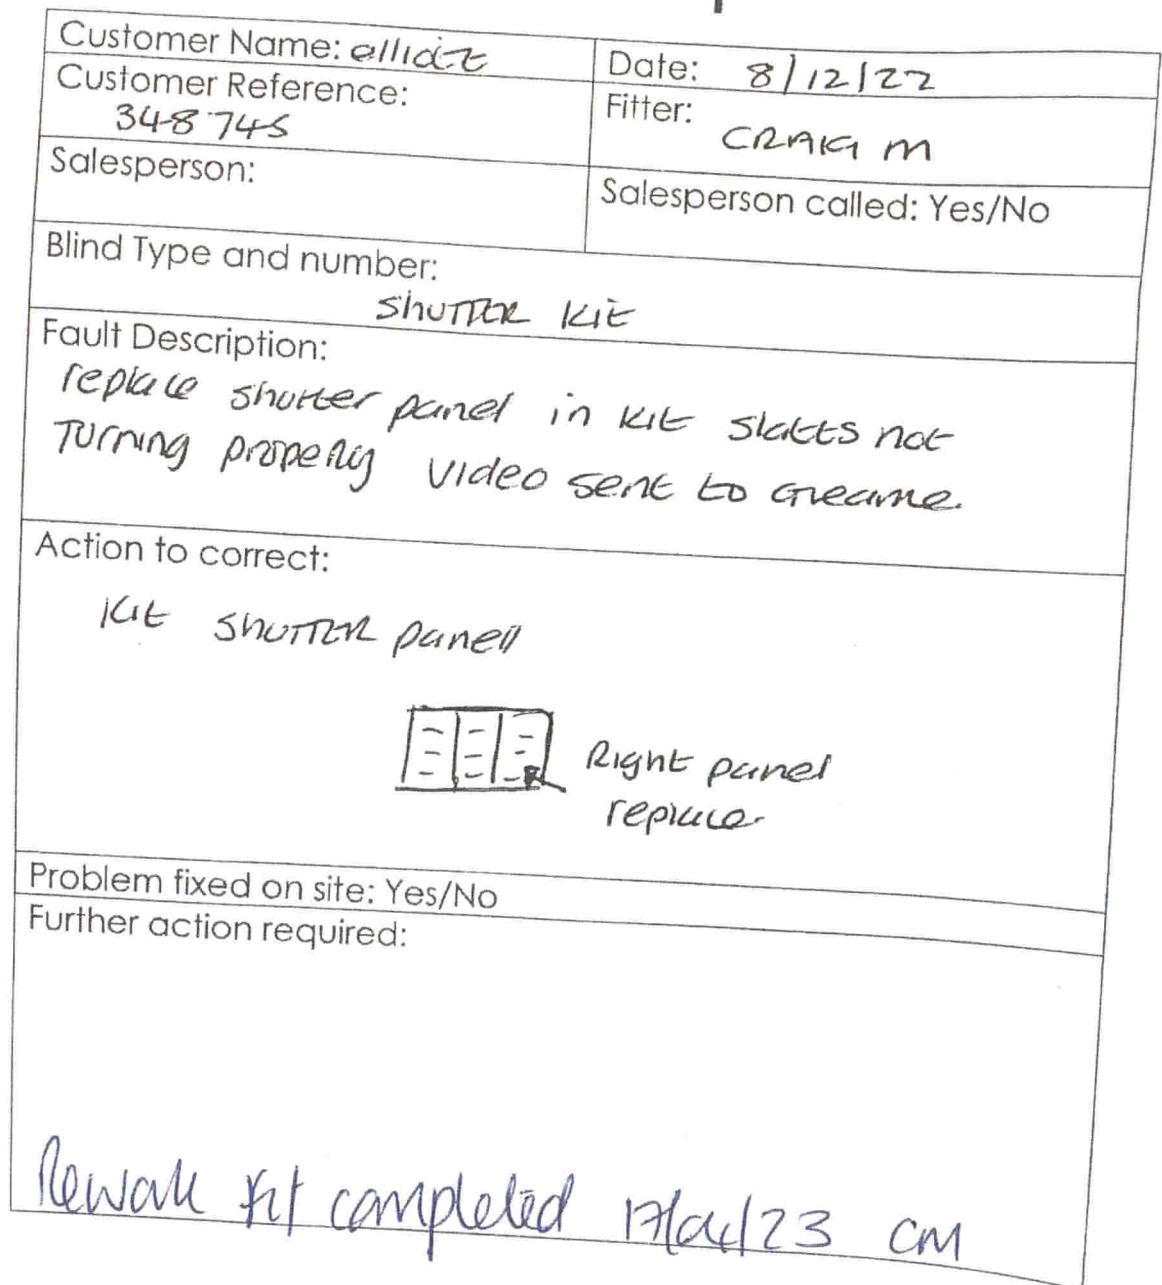 Customer Name: elliott
Date: 8/12/22
Customer Reference:
348745
Fitter:
CRAIG M
Salesperson:
Salesperson called: Yes/No
Blind Type and number:
SHUTTER Kit
Fault Description:
replace shutter panel in kit slatts not
Turning properly video sent to Greame.
Action to correct:
Kit SHUTTER panell
Right panel
replace
Problem fixed on site: Yes/No
Further action required:
Rework completed 17/04/23 CM